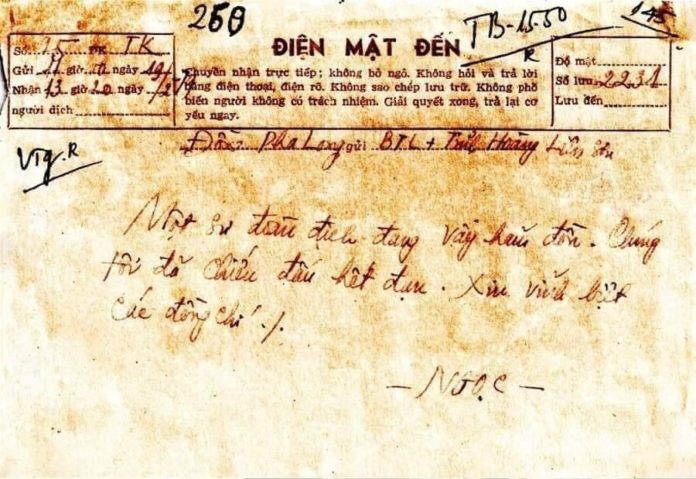 250
TB-15.50
R
145
Số 25 ĐK TK
Gửi 11 giờ 11 ngày 19/
Nhận 13 giờ 20 ngày /2
người dịch
ĐIỆN MẬT ĐẾN
Chuyển nhận trực tiếp; không bỏ ngỏ. Không hỏi và trả lời
bằng điện thoại, điện rõ. Không sao chép lưu trữ. Không phổ
biến người không có trách nhiệm. Giải quyết xong, trả lại cơ
yếu ngay.
Độ mật
Số lưu 2231
Lưu đến
Vtg.R
Đồn Pha Long gửi BTL + Tỉnh Hoàng Liên Sơn
Một sư đoàn địch đang vây hãm đồn. Chúng
tôi đã chiến đấu hết đạn. Xin vĩnh biệt
các đồng chí ./.
- NGỌC -